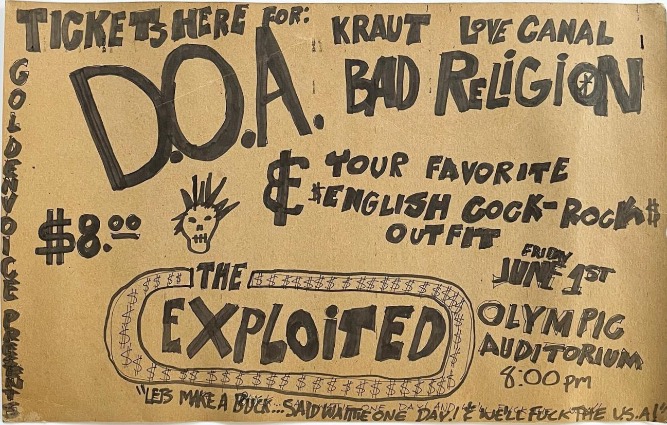 TICKETS HERE FOR:
KRAUT LOVE CANAL
D.O.A. BAD RELIGION
GOLDENVOICE PRESENTS
& YOUR FAVORITE
$ENGLISH COCK-ROCK$
OUTFIT
$8.00
FRIDAY
JUNE 1ST
THE
EXPLOITED
OLYMPIC
AUDITORIUM
8:00 PM
"LETS MAKE A BUCK... SAID WATTIE ONE DAY! & WE'LL FUCK THE U.S.A!"